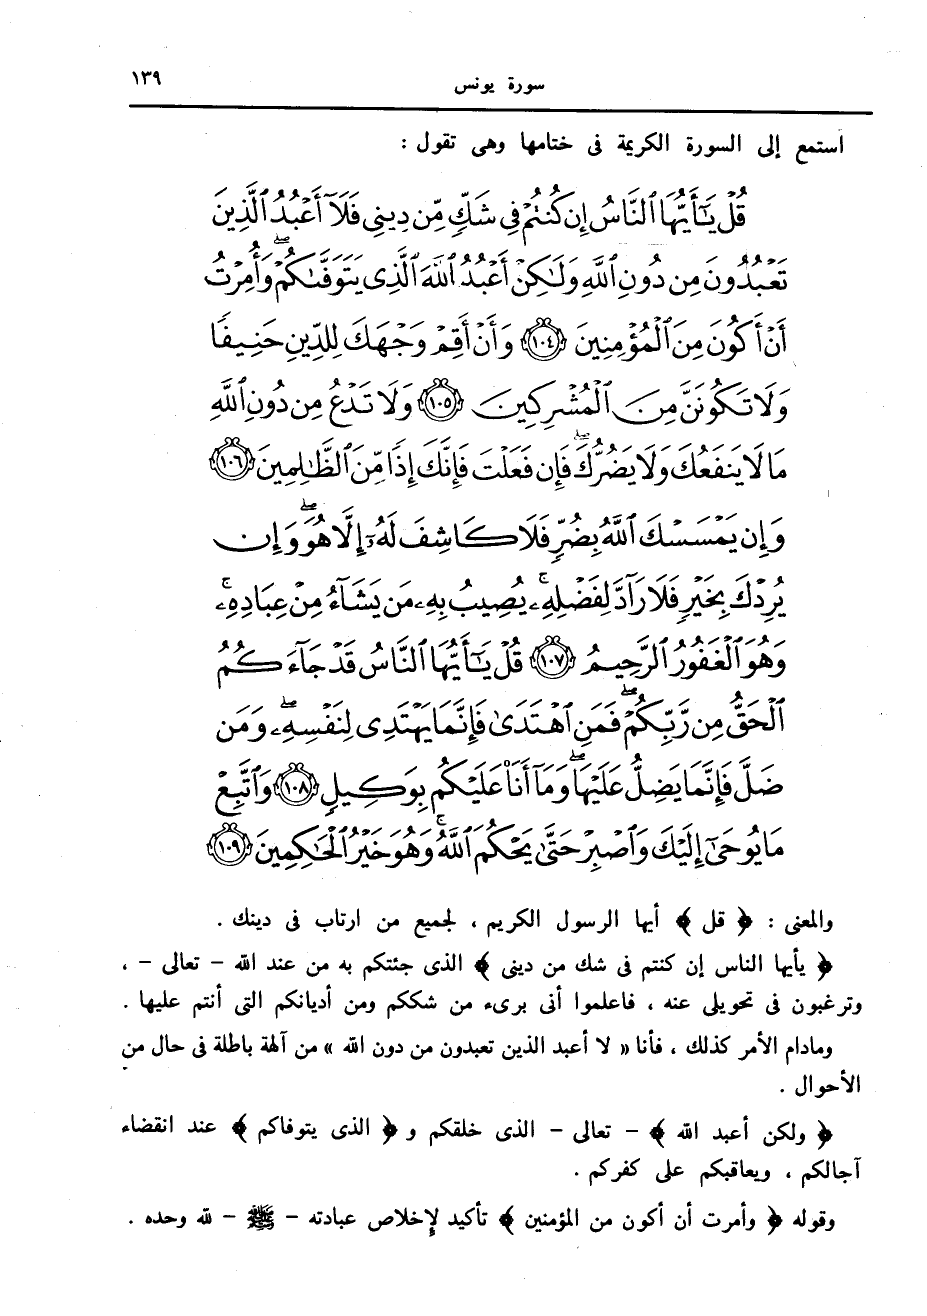 سورة يونس
١٣٩
استمع إلى السورة الكريمة فى ختامها وهى تقول :
قُلْ يَٰٓأَيُّهَا ٱلنَّاسُ إِن كُنتُمْ فِى شَكٍّ مِّن دِينِى فَلَآ أَعْبُدُ ٱلَّذِينَ
تَعْبُدُونَ مِن دُونِ ٱللَّهِ وَلَٰكِنْ أَعْبُدُ ٱللَّهَ ٱلَّذِى يَتَوَفَّىٰكُمْ ۖ وَأُمِرْتُ
أَنْ أَكُونَ مِنَ ٱلْمُؤْمِنِينَ ﴿١٠٤﴾ وَأَنْ أَقِمْ وَجْهَكَ لِلدِّينِ حَنِيفًا
وَلَا تَكُونَنَّ مِنَ ٱلْمُشْرِكِينَ ﴿١٠٥﴾ وَلَا تَدْعُ مِن دُونِ ٱللَّهِ
مَا لَا يَنفَعُكَ وَلَا يَضُرُّكَ ۖ فَإِن فَعَلْتَ فَإِنَّكَ إِذًا مِّنَ ٱلظَّٰلِمِينَ ﴿١٠٦﴾
وَإِن يَمْسَسْكَ ٱللَّهُ بِضُرٍّ فَلَا كَاشِفَ لَهُۥٓ إِلَّا هُوَ ۖ وَإِن
يُرِدْكَ بِخَيْرٍ فَلَا رَآدَّ لِفَضْلِهِۦ ۚ يُصِيبُ بِهِۦ مَن يَشَآءُ مِنْ عِبَادِهِۦ ۚ
وَهُوَ ٱلْغَفُورُ ٱلرَّحِيمُ ﴿١٠٧﴾ قُلْ يَٰٓأَيُّهَا ٱلنَّاسُ قَدْ جَآءَكُمُ
ٱلْحَقُّ مِن رَّبِّكُمْ ۖ فَمَنِ ٱهْتَدَىٰ فَإِنَّمَا يَهْتَدِى لِنَفْسِهِۦ ۖ وَمَن
ضَلَّ فَإِنَّمَا يَضِلُّ عَلَيْهَا ۖ وَمَآ أَنَا۠ عَلَيْكُم بِوَكِيلٍ ﴿١٠٨﴾ وَٱتَّبِعْ
مَا يُوحَىٰٓ إِلَيْكَ وَٱصْبِرْ حَتَّىٰ يَحْكُمَ ٱللَّهُ ۚ وَهُوَ خَيْرُ ٱلْحَٰكِمِينَ ﴿١٠٩﴾
والمعنى : ﴿ قل ﴾ أيها الرسول الكريم ، لجميع من ارتاب فى دينك .
﴿ يأيها الناس إن كنتم فى شك من دينى ﴾ الذى جئتكم به من عند الله – تعالى – ،
وترغبون فى تحويلى عنه ، فاعلموا أنى برىء من شككم ومن أديانكم التى أنتم عليها .
ومادام الأمر كذلك ، فأنا « لا أعبد الذين تعبدون من دون الله » من آلهة باطلة فى حال من
الأحوال .
﴿ ولكن أعبد الله ﴾ – تعالى – الذى خلقكم و ﴿ الذى يتوفاكم ﴾ عند انقضاء
آجالكم ، ويعاقبكم على كفركم .
وقوله ﴿ وأمرت أن أكون من المؤمنين ﴾ تأكيد لإخلاص عبادته – ﷺ – لله وحده .